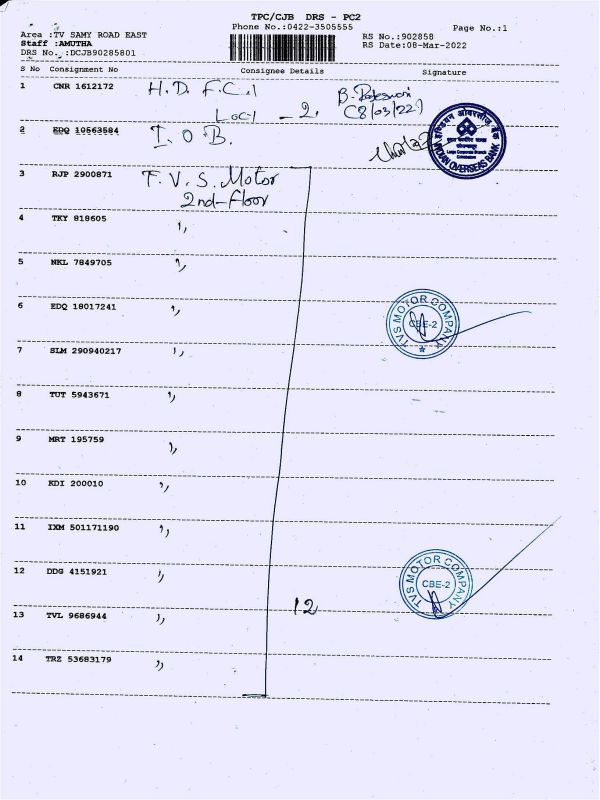 TPC/CJB DRS - PC2
Phone No.:0422-3505555
Page No.:1
Area :TV SAMY ROAD EAST
RS No.:902858
Staff :AMUTHA
RS Date:08-Mar-2022
DRS No.:DCJB90285801
S No Consignment No Consignee Details Signature
1 CNR 1612172 H. D. F. C.
- 2.
2 EDQ 10563584 I O B.
INDIAN OVERSEAS BANK
इण्डियन ओवरसीज़ बैंक
3 RJP 2900871 T. V. S. Motor
2nd-Floor
4 TKY 818605 ,,
5 NKL 7849705 ,,
6 EDQ 18017241 ,,
TVS MOTOR COMPANY
CBE-2
7 SLM 290940217 ,,
8 TUT 5943671 ,,
9 MRT 195759 ,,
10 KDI 200010 ,,
11 IXM 501171190 ,,
12 DDG 4151921 ,,
TVS MOTOR COMPANY
CBE-2
12
13 TVL 9686944 ,,
14 TRZ 53683179 ,,